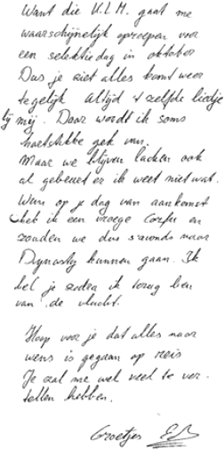 Want die K.L.M. gaat me
waarschijnelijk oproepen voor
een selektiedag in oktober
Dus je ziet alles komt weer
tegelijk Altijd 't zelfde liedje
bij mij. Daar wordt ik soms
hartstikke gek van.
Maar we blijven lachen ook
al gebeurt er ik weet niet wat.
Wan op je dag van aankomst
heb ik een vroege Corfu en
zouden we dus s'avonds naar
Dynasty kunnen gaan. Ik
bel je zodra ik terug ben
van de vlucht.
Hoop voor je dat alles naar
wens is gegaan op reis
Je zal me wel veel te ver-
tellen hebben.
Groetjes